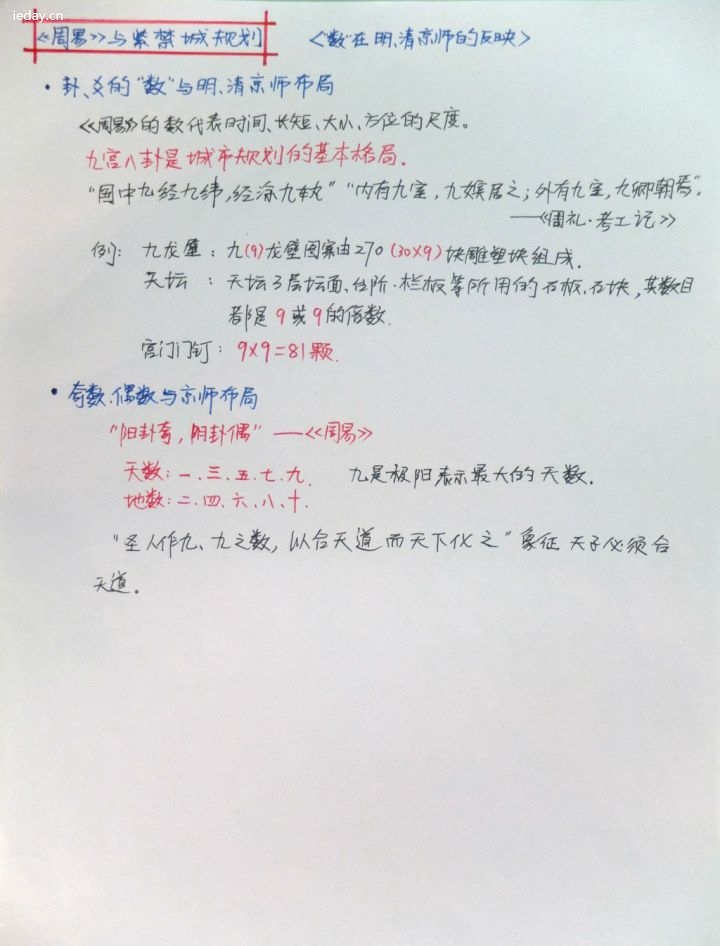 ieday.cn
《周易》与紫禁城规划 <"数"在明、清京师的反映>
·卦、爻的"数"与明、清京师布局
《周易》的数代表时间、长短、大小、方位的尺度。
九宫八卦是城市规划的基本格局.
"国中九经九纬,经涂九轨" "内有九室,九嫔居之;外有九室,九卿朝焉".
——《周礼·考工记》
例: 九龙壁: 九(9)龙壁图案由270(30×9)块雕塑块组成.
天坛 : 天坛3层坛面、台阶·栏板等所用的石板、石块,其数目
都是9或9的倍数.
宫门门钉: 9×9=81颗.
·奇数、偶数与京师布局
"阳卦奇,阴卦偶" ——《周易》
天数: 一、三、五、七、九. 九是极阳表示最大的天数.
地数: 二、四、六、八、十.
"圣人作九、九之数,以合天道而天下化之"象征天子必须合
天道.